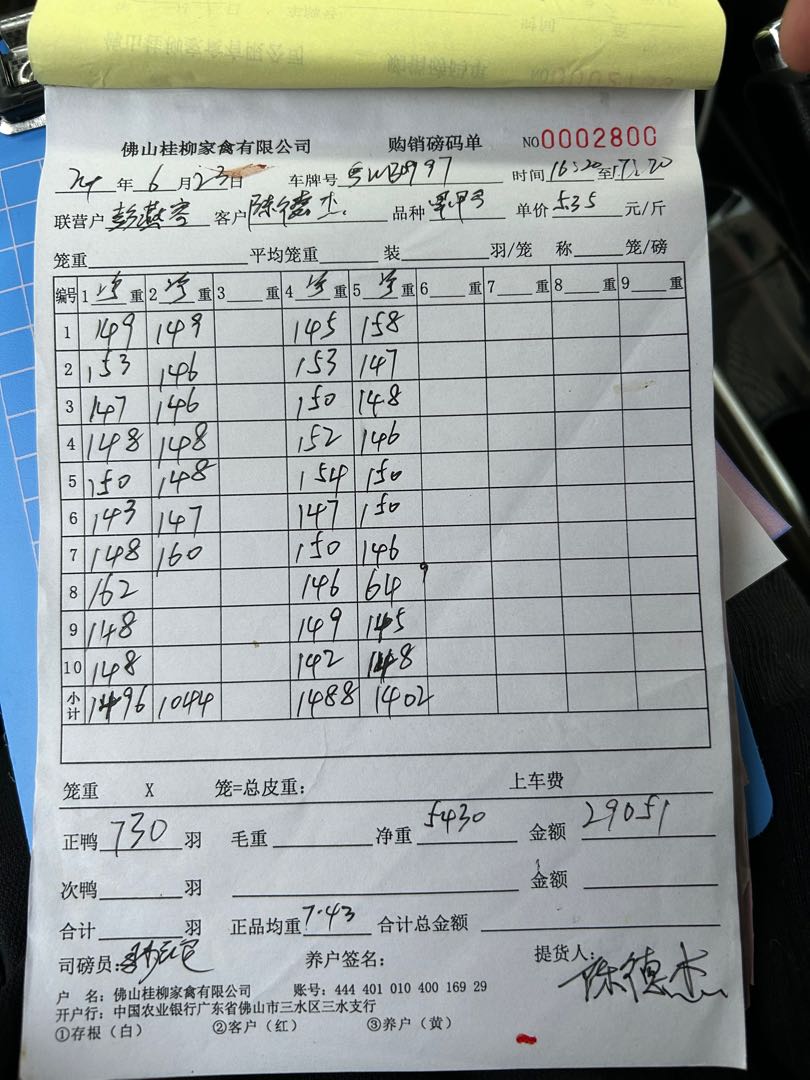 佛山桂柳家禽有限公司 购销磅码单 NO0002800
24 年 6 月 23 日 车牌号 粤 8997 时间 16:20 至 17:20
联营户 彭燕容 客户 陈德杰 品种 单价 5.35 元/斤
笼重 平均笼重 装 羽/笼 称 笼/磅
编号 1 重 2 重 3 重 4 重 5 重 6 重 7 重 8 重 9 重
1 149 149 145 158
2 153 146 153 147
3 147 146 150 148
4 148 148 152 146
5 150 148 154 150
6 143 147 147 150
7 148 160 150 146
8 162 146 64 9
9 148 149 145
10 148 142 148
小计 1496 1044 1488 1402
笼重 X 笼=总皮重: 上车费
正鸭 730 羽 毛重 净重 5430 金额 29051
次鸭 羽 金额
合计 羽 正品均重 7.43 合计总金额
司磅员: 养户签名: 提货人: 陈德杰
户 名: 佛山桂柳家禽有限公司 账号: 444 401 010 400 169 29
开户行: 中国农业银行广东省佛山市三水区三水支行
①存根（白） ②客户（红） ③养户（黄）